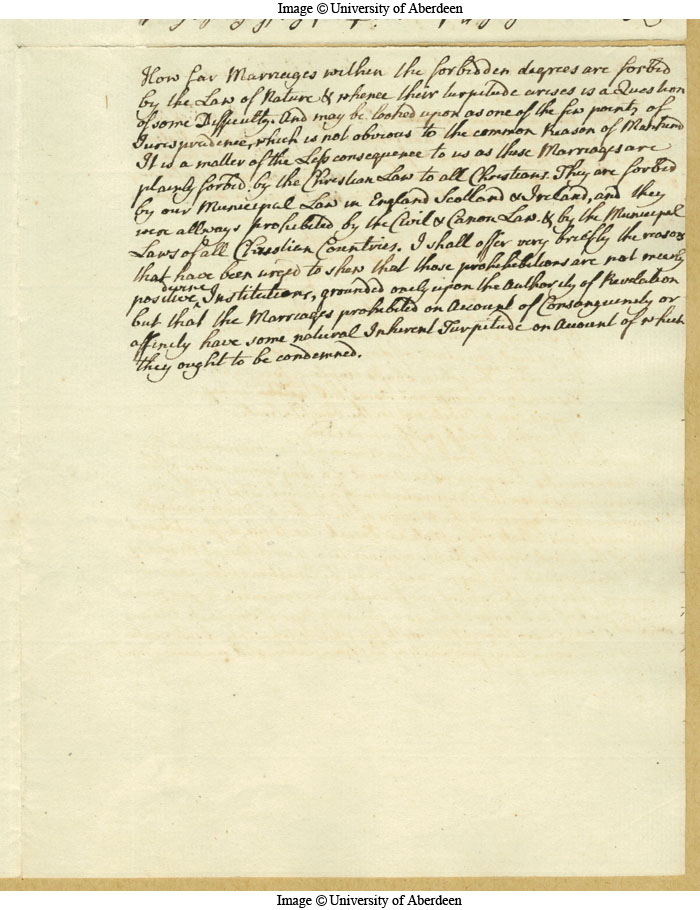 Image © University of Aberdeen
How far Marriages within the forbidden degrees are forbid
by the Law of Nature & whence their turpitude arises is a Question
of some Difficulty. And may be looked upon as one of the few points of
Jurisprudence, which is not obvious to the common Reason of Mankind
It is a matter of the Less consequence to us as these Marriages are
plainly forbid by the Christian Law to all Christians. They are forbid
by our Municipal Law in England Scotland & Ireland, and they
were allways prohibited by the Civil & Canon Law. & by the Municipal
Laws of all Christian Countries. I shall offer very briefly the reasons
that have been urged to shew that those prohibitions are not meerly
divine
positive Institutions, grounded onely upon the Authority of Revelation
but that the Marriages prohibited on Account of Consanguinity or
affinity have some natural Inherent Turpitude on Account of which
they ought to be condemned.
Image © University of Aberdeen